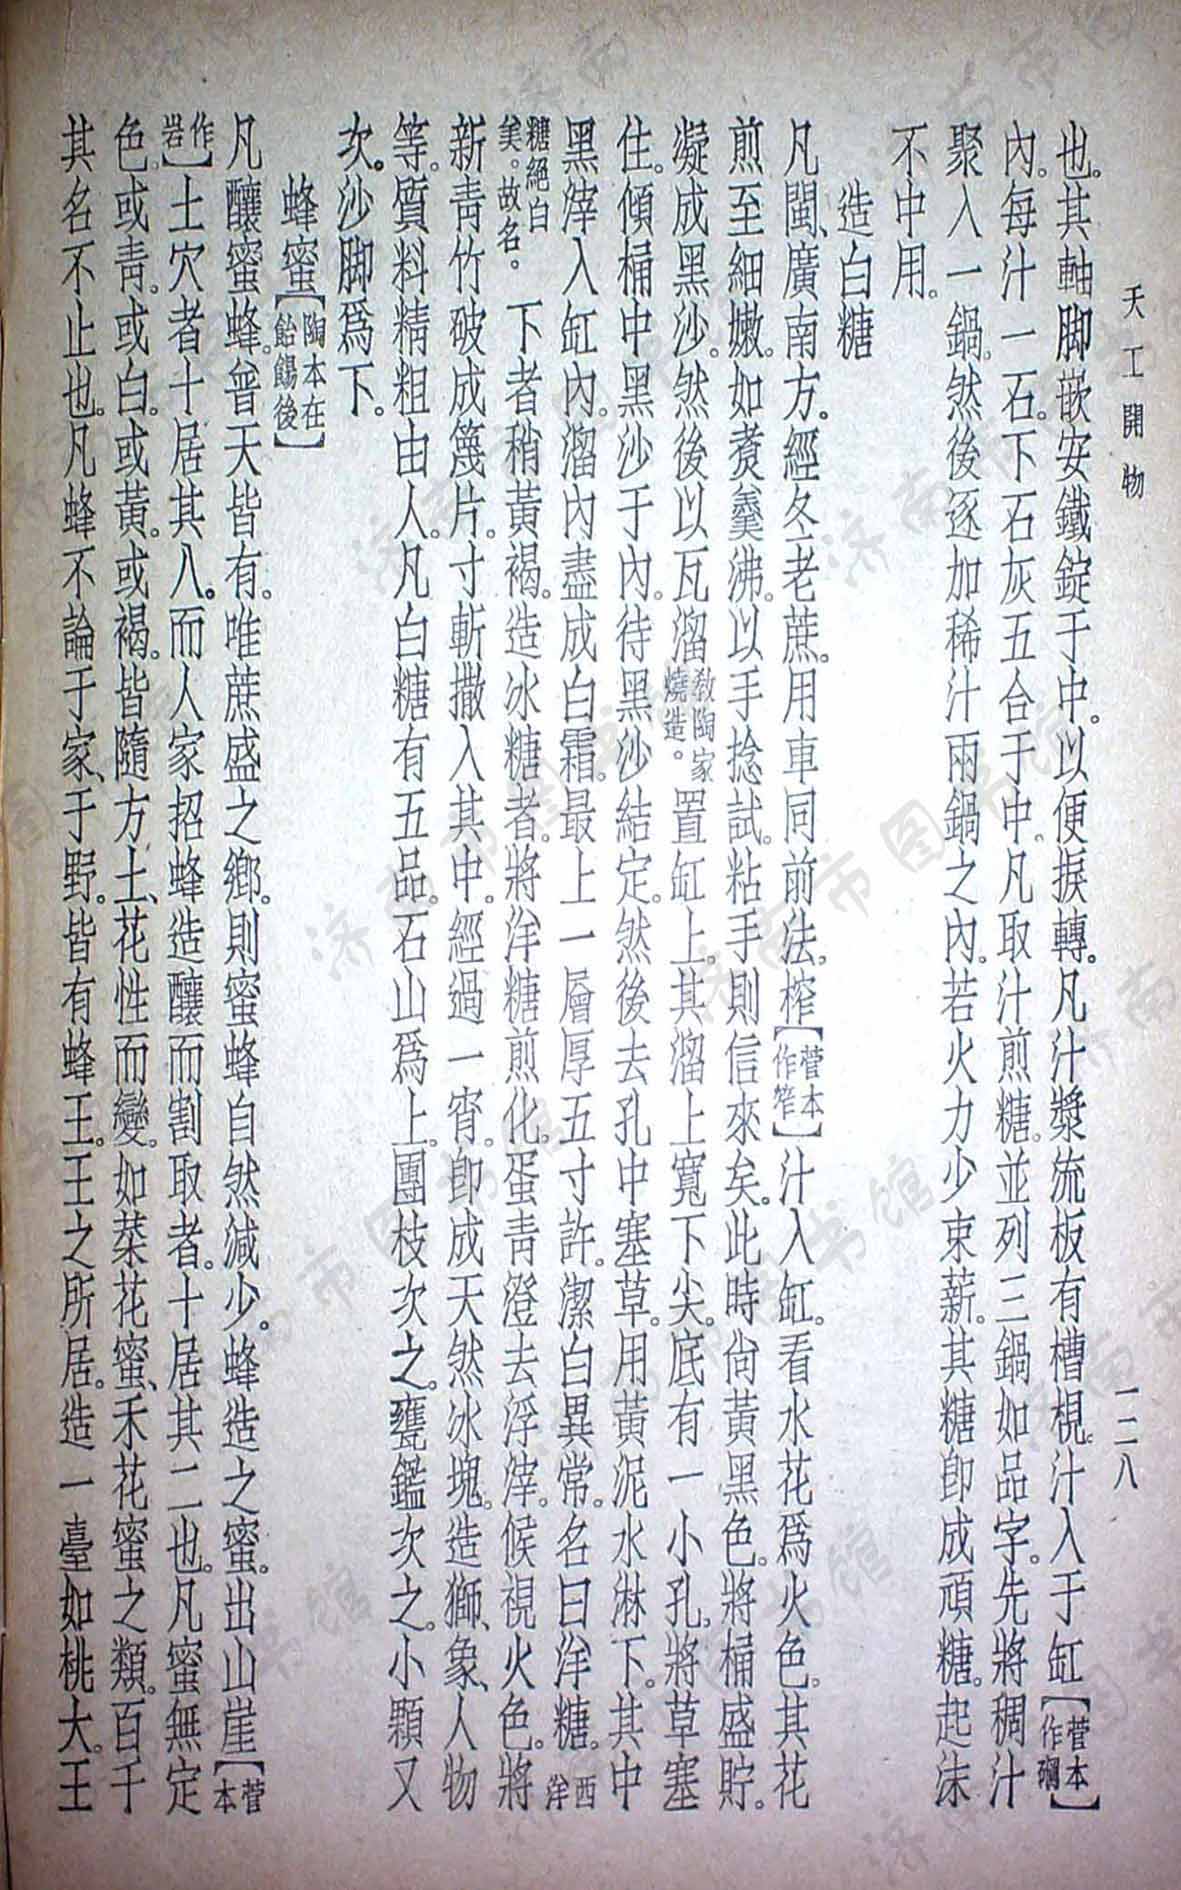 天工開物
一二八
也。其軸脚嵌安鐵錠于中。以便捩轉。凡汁漿流板有槽梘。汁入于缸【菅本作𤭛】
內。每汁一石。下石灰五合于中。凡取汁煎糖。並列三鍋如品字。先將稠汁
聚入一鍋。然後逐加稀汁兩鍋之內。若火力少束薪。其糖卽成頑糖。起沫
不中用。
造白糖
凡閩、廣南方。經冬老蔗。用車同前法。榨【菅本作笮】汁入缸。看水花爲火色。其花
煎至細嫩。如煑羹沸。以手捻試。粘手則信來矣。此時尙黃黑色。將桶盛貯。
凝成黑沙。然後以瓦溜敎陶家燒造。置缸上。其溜上寬下尖。底有一小孔。將草塞
住。傾桶中黑沙于內。待黑沙結定。然後去孔中塞草。用黃泥水淋下。其中
黑滓入缸內。溜內盡成白霜。最上一層厚五寸許。潔白異常。名曰洋糖。西洋
糖絕白美。故名。下者稍黃褐。造冰糖者。將洋糖煎化。蛋靑澄去浮滓。候視火色。將
新靑竹破成篾片。寸斬撒入其中。經過一宵。卽成天然冰塊。造獅、象、人物
等。質料精粗由人。凡白糖有五品。石山爲上。團枝次之。甕鑑次之。小顆又
次。沙脚爲下。
蜂蜜【陶本在飴餳後】
凡釀蜜蜂。曾天皆有。唯蔗盛之鄉。則蜜蜂自然減少。蜂造之蜜。出山崖【菅本
作岩】土穴者十居其八。而人家招蜂造釀而割取者。十居其二也。凡蜜無定
色。或靑。或白。或黃。或褐。皆隨方土、花性而變。如菜花蜜、禾花蜜之類。百千
其名不止也。凡蜂不論于家、于野。皆有蜂王。王之所居。造一臺如桃大。王